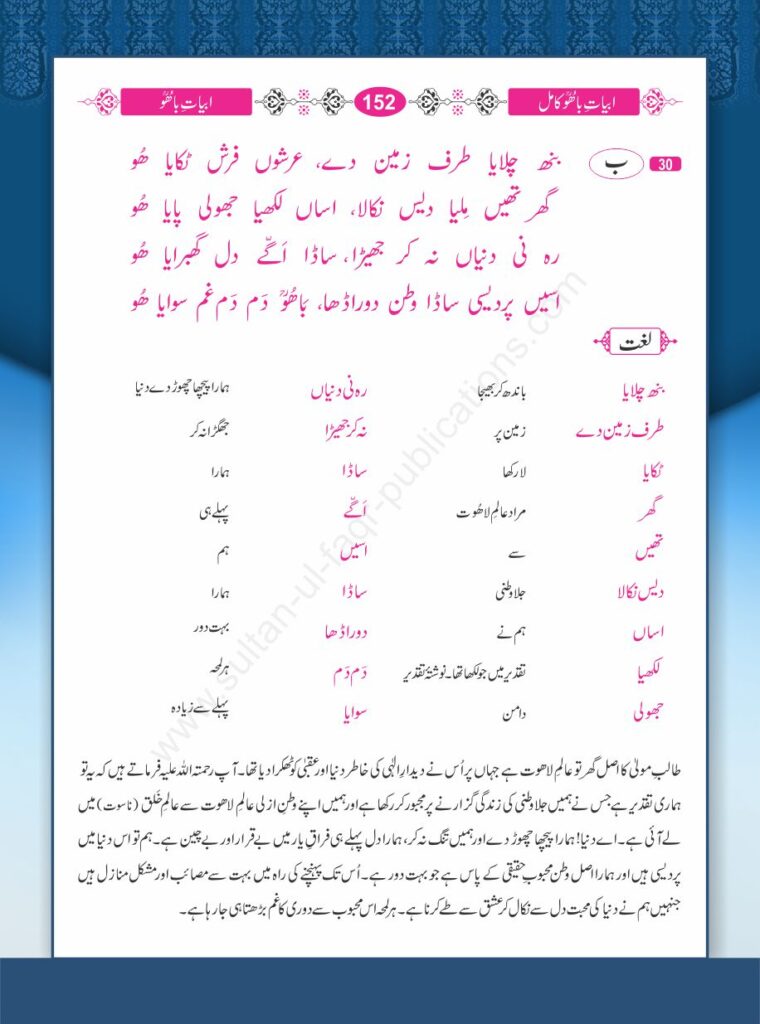 ابیاتِ باھُوؒ کامل 152 ابیاتِ باھُوؒ
30 ب بنھ چلایا طرف زمین دے، عرشوں فرش ٹکایا ھُو
گھر تھیں مِلیا دیس نکالا، اساں لکھیا جھولی پایا ھُو
رہ نی دنیاں نہ کر جھیڑا، ساڈا اَگّے دل گھبرایا ھُو
اسیں پردیسی ساڈا وطن دوراڈھا، باھُوؒ دَم دَم غم سوایا ھُو
لغت
بنھ چلایا باندھ کر بھیجا رہ نی دنیاں ہمارا پیچھا چھوڑ دے دنیا
طرف زمین دے زمین پر نہ کر جھیڑا جھگڑا نہ کر
ٹکایا لا رکھا ساڈا ہمارا
گھر مراد عالمِ لاھُوت اَگّے پہلے ہی
تھیں سے اسیں ہم
دیس نکالا جلا وطنی ساڈا ہمارا
اساں ہم نے دوراڈھا بہت دور
لکھیا تقدیر میں جو لکھا تھا۔ نوشتۂ تقدیر دَم دَم ہر لمحہ
جھولی دامن سوایا پہلے سے زیادہ
طالبِ مولیٰ کا اصل گھر تو عالمِ لاھوت ہے جہاں پر اُس نے دیدارِ الٰہی کی خاطر دنیا اور عقبیٰ کو ٹھکرا دیا تھا۔ آپ رحمتہ اللہ علیہ فرماتے ہیں کہ یہ تو
ہماری تقدیر ہے جس نے ہمیں جلا وطنی کی زندگی گزارنے پر مجبور کر رکھا ہے اور ہمیں اپنے وطنِ ازلی عالمِ لاھوت سے عالمِ خَلق (ناسوت) میں
لے آئی ہے۔ اے دنیا! ہمارا پیچھا چھوڑ دے اور ہمیں تنگ نہ کر، ہمارا دل پہلے ہی فراقِ یار میں بے قرار اور بے چین ہے۔ ہم تو اس دنیا میں
پردیسی ہیں اور ہمارا اصل وطن محبوبِ حقیقی کے پاس ہے جو بہت دور ہے۔ اُس تک پہنچنے کی راہ میں بہت سے مصائب اور مشکل منازل ہیں
جنہیں ہم نے دنیا کی محبت دل سے نکال کر عشق سے طے کرنا ہے۔ ہر لمحہ اس محبوب سے دوری کا غم بڑھتا ہی جا رہا ہے۔
www.sultan-ul-faqr-publications.com